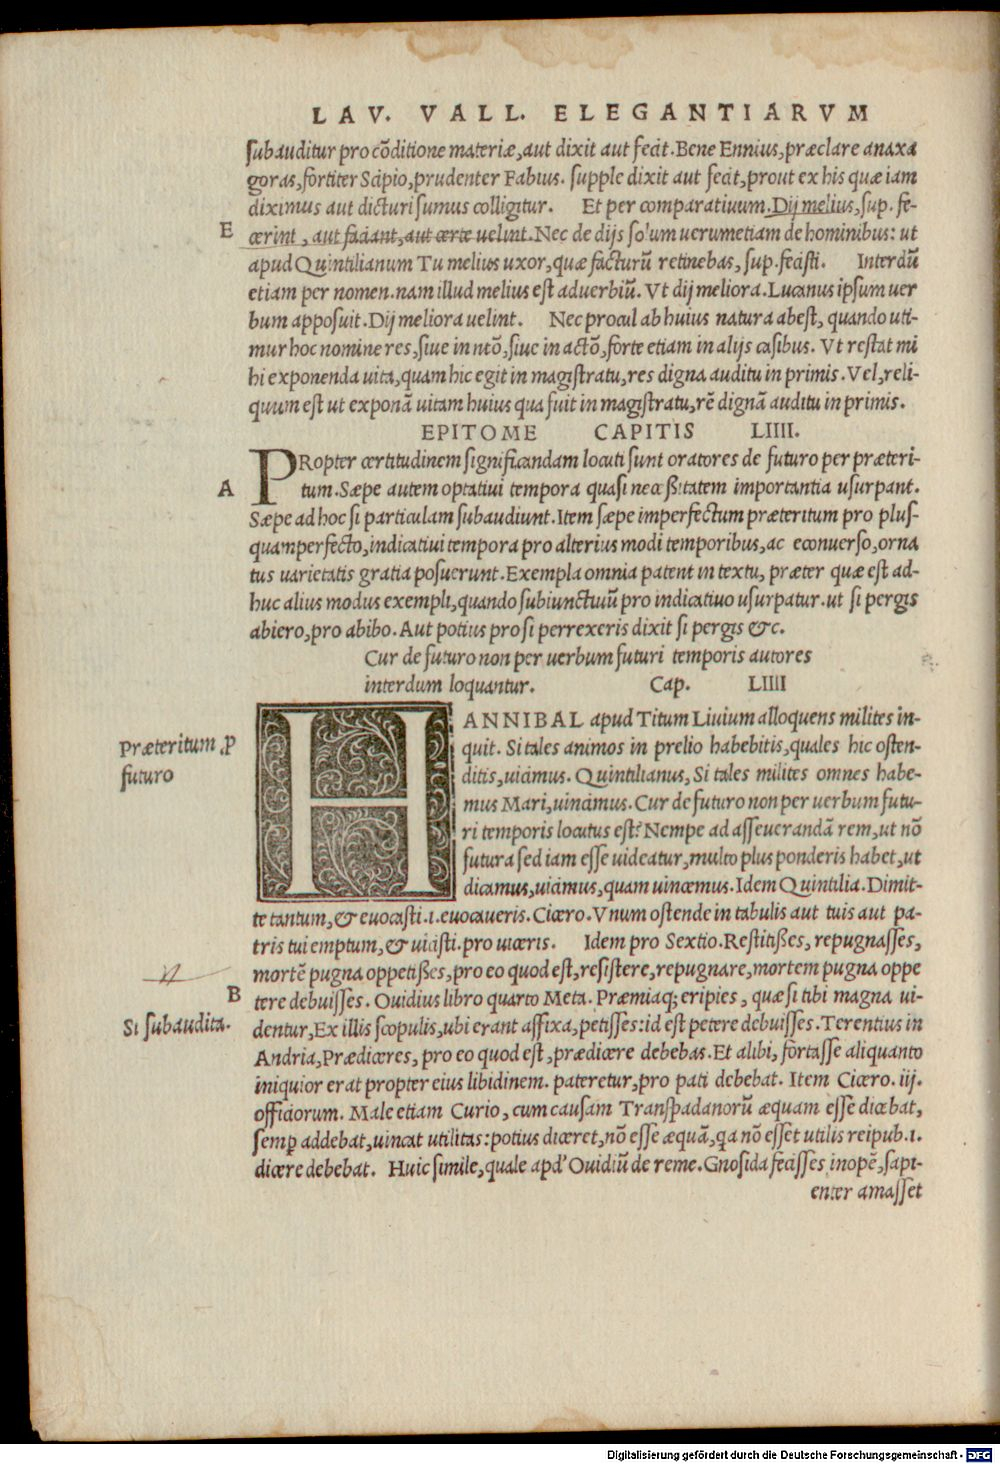 LAV. VALL. ELEGANTIARVM
subauditur pro cõditione materiæ, aut dixit aut fecit. Bene Ennius, præclare anaxa
goras, fortiter Scipio, prudenter Fabius. supple dixit aut fecit, prout ex his quæ iam
diximus aut dicturi sumus colligitur. Et per comparatiuum. Dij melius, sup. fe-
E
cerint, aut faciant, aut certe uelint. Nec de dijs solum uerumetiam de hominibus: ut
apud Quintilianum Tu melius uxor, quæ facturũ retinebas, sup. fecisti. Interdũ
etiam per nomen. nam illud melius est aduerbiũ. Vt dij meliora. Lucanus ipsum uer
bum apposuit. Dij meliora uelint. Nec procul ab huius natura abest, quando uti-
mur hoc nomine res, siue in ntõ, siue in actõ, forte etiam in alijs casibus. Vt restat mi
hi exponenda uita, quam hic egit in magistratu, res digna auditu in primis. Vel, reli-
quum est ut exponã uitam huius qua fuit in magistratu, rẽ dignã auditu in primis.
EPITOME CAPITIS LIIII.
PRopter certitudinem significandam locuti sunt oratores de futuro per præteri-
A
tum. Sæpe autem optatiui tempora quasi necessitatem importantia usurpant.
Sæpe ad hoc si particulam subaudiunt. Item sæpe imperfectum præteritum pro plus-
quamperfecto, indicatiui tempora pro alterius modi temporibus, ac econuerso, orna
tus uarietatis gratia posuerunt. Exempla omnia patent in textu, præter quæ est ad-
huc alius modus exempli, quando subiunctiuũ pro indicatiuo usurpatur. ut si pergis
abiero, pro abibo. Aut potius pro si perrexeris dixit si pergis &c.
Cur de futuro non per uerbum futuri temporis autores
interdum loquantur. Cap. LIIII
HANNIBAL apud Titum Liuium alloquens milites in-
Præteritum ꝓ
futuro
quit. Si tales animos in prelio habebitis, quales hic osten-
ditis, uicimus. Quintilianus, Si tales milites omnes habe-
mus Mari, uincimus. Cur de futuro non per uerbum futu-
ri temporis locutus est? Nempe ad asseuerandã rem, ut nõ
futura sed iam esse uideatur, multo plus ponderis habet, ut
dicamus, uicimus, quam uincemus. Idem Quintilia. Dimit-
te tantum, & euocasti. i. euocaueris. Cicero. Vnum ostende in tabulis aut tuis aut pa-
tris tui emptum, & uicisti. pro uiceris. Idem pro Sextio. Restitisses, repugnasses,
mortẽ pugna oppetisses, pro eo quod est, resistere, repugnare, mortem pugna oppe
B
tere debuisses. Ouidius libro quarto Meta. Præmiaq; eripies, quæ si tibi magna ui-
Si subaudita.
dentur, Ex illis scopulis, ubi erant affixa, petisses: id est petere debuisses. Terentius in
Andria, Prædiceres, pro eo quod est, prædicere debebas. Et alibi, fortasse aliquanto
iniquior erat propter eius libidinem. pateretur, pro pati debebat. Item Cicero. iij.
officiorum. Male etiam Curio, cum causam Transpadanorũ æquam esse dicebat,
semꝑ addebat, uincat utilitas: potius diceret, nõ esse æquã, qa nõ esset utilis reipub. i.
dicere debebat. Huic simile, quale apd' Ouidiũ de reme. Gnosida fecisses inopẽ, sapi-
enter amasset
Digitalisierung gefördert durch die Deutsche Forschungsgemeinschaft - DFG